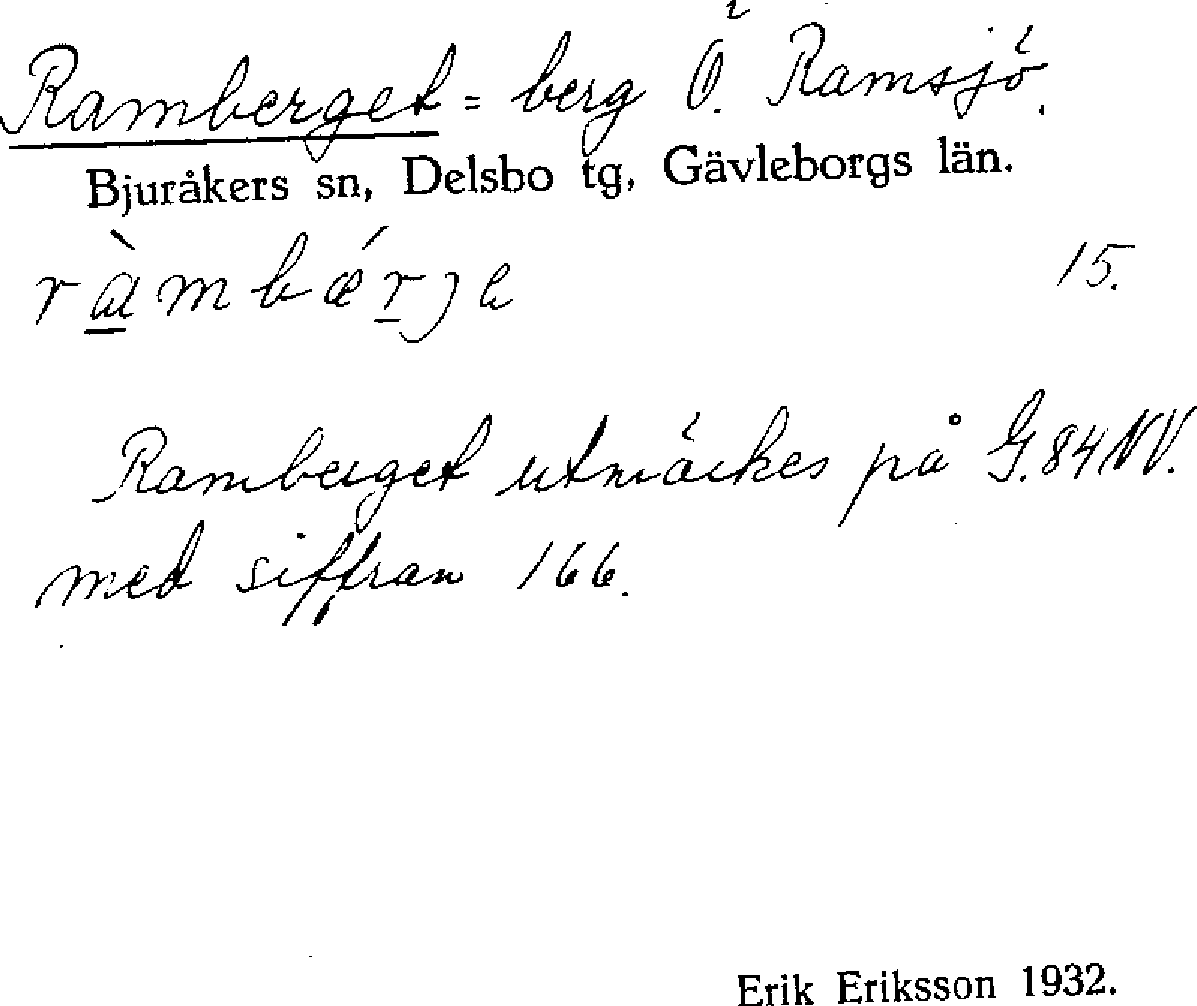 Ramberget = berg Ö. Ramsjö.
Bjuråkers sn, Delsbo tg, Gävleborgs län.
ràmbǽrje 15.
Ramberget utmärkes på G. 84 NV.
med siffran 166.
Erik Eriksson 1932.